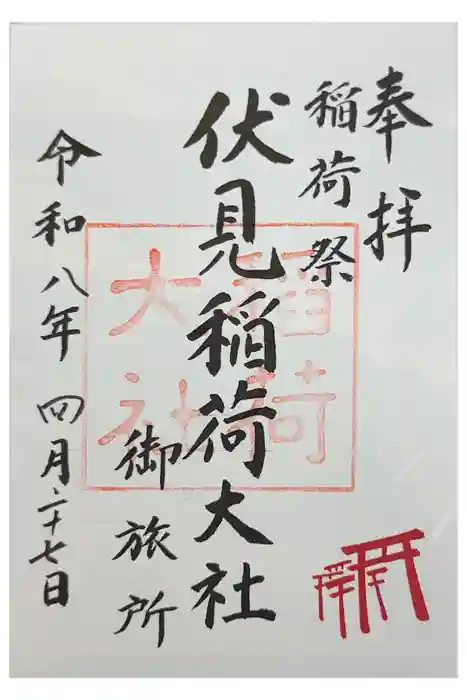 奉拝
稲荷祭
伏見稲荷大社
御旅所
稲荷
大社
令和八年 四月二十七日